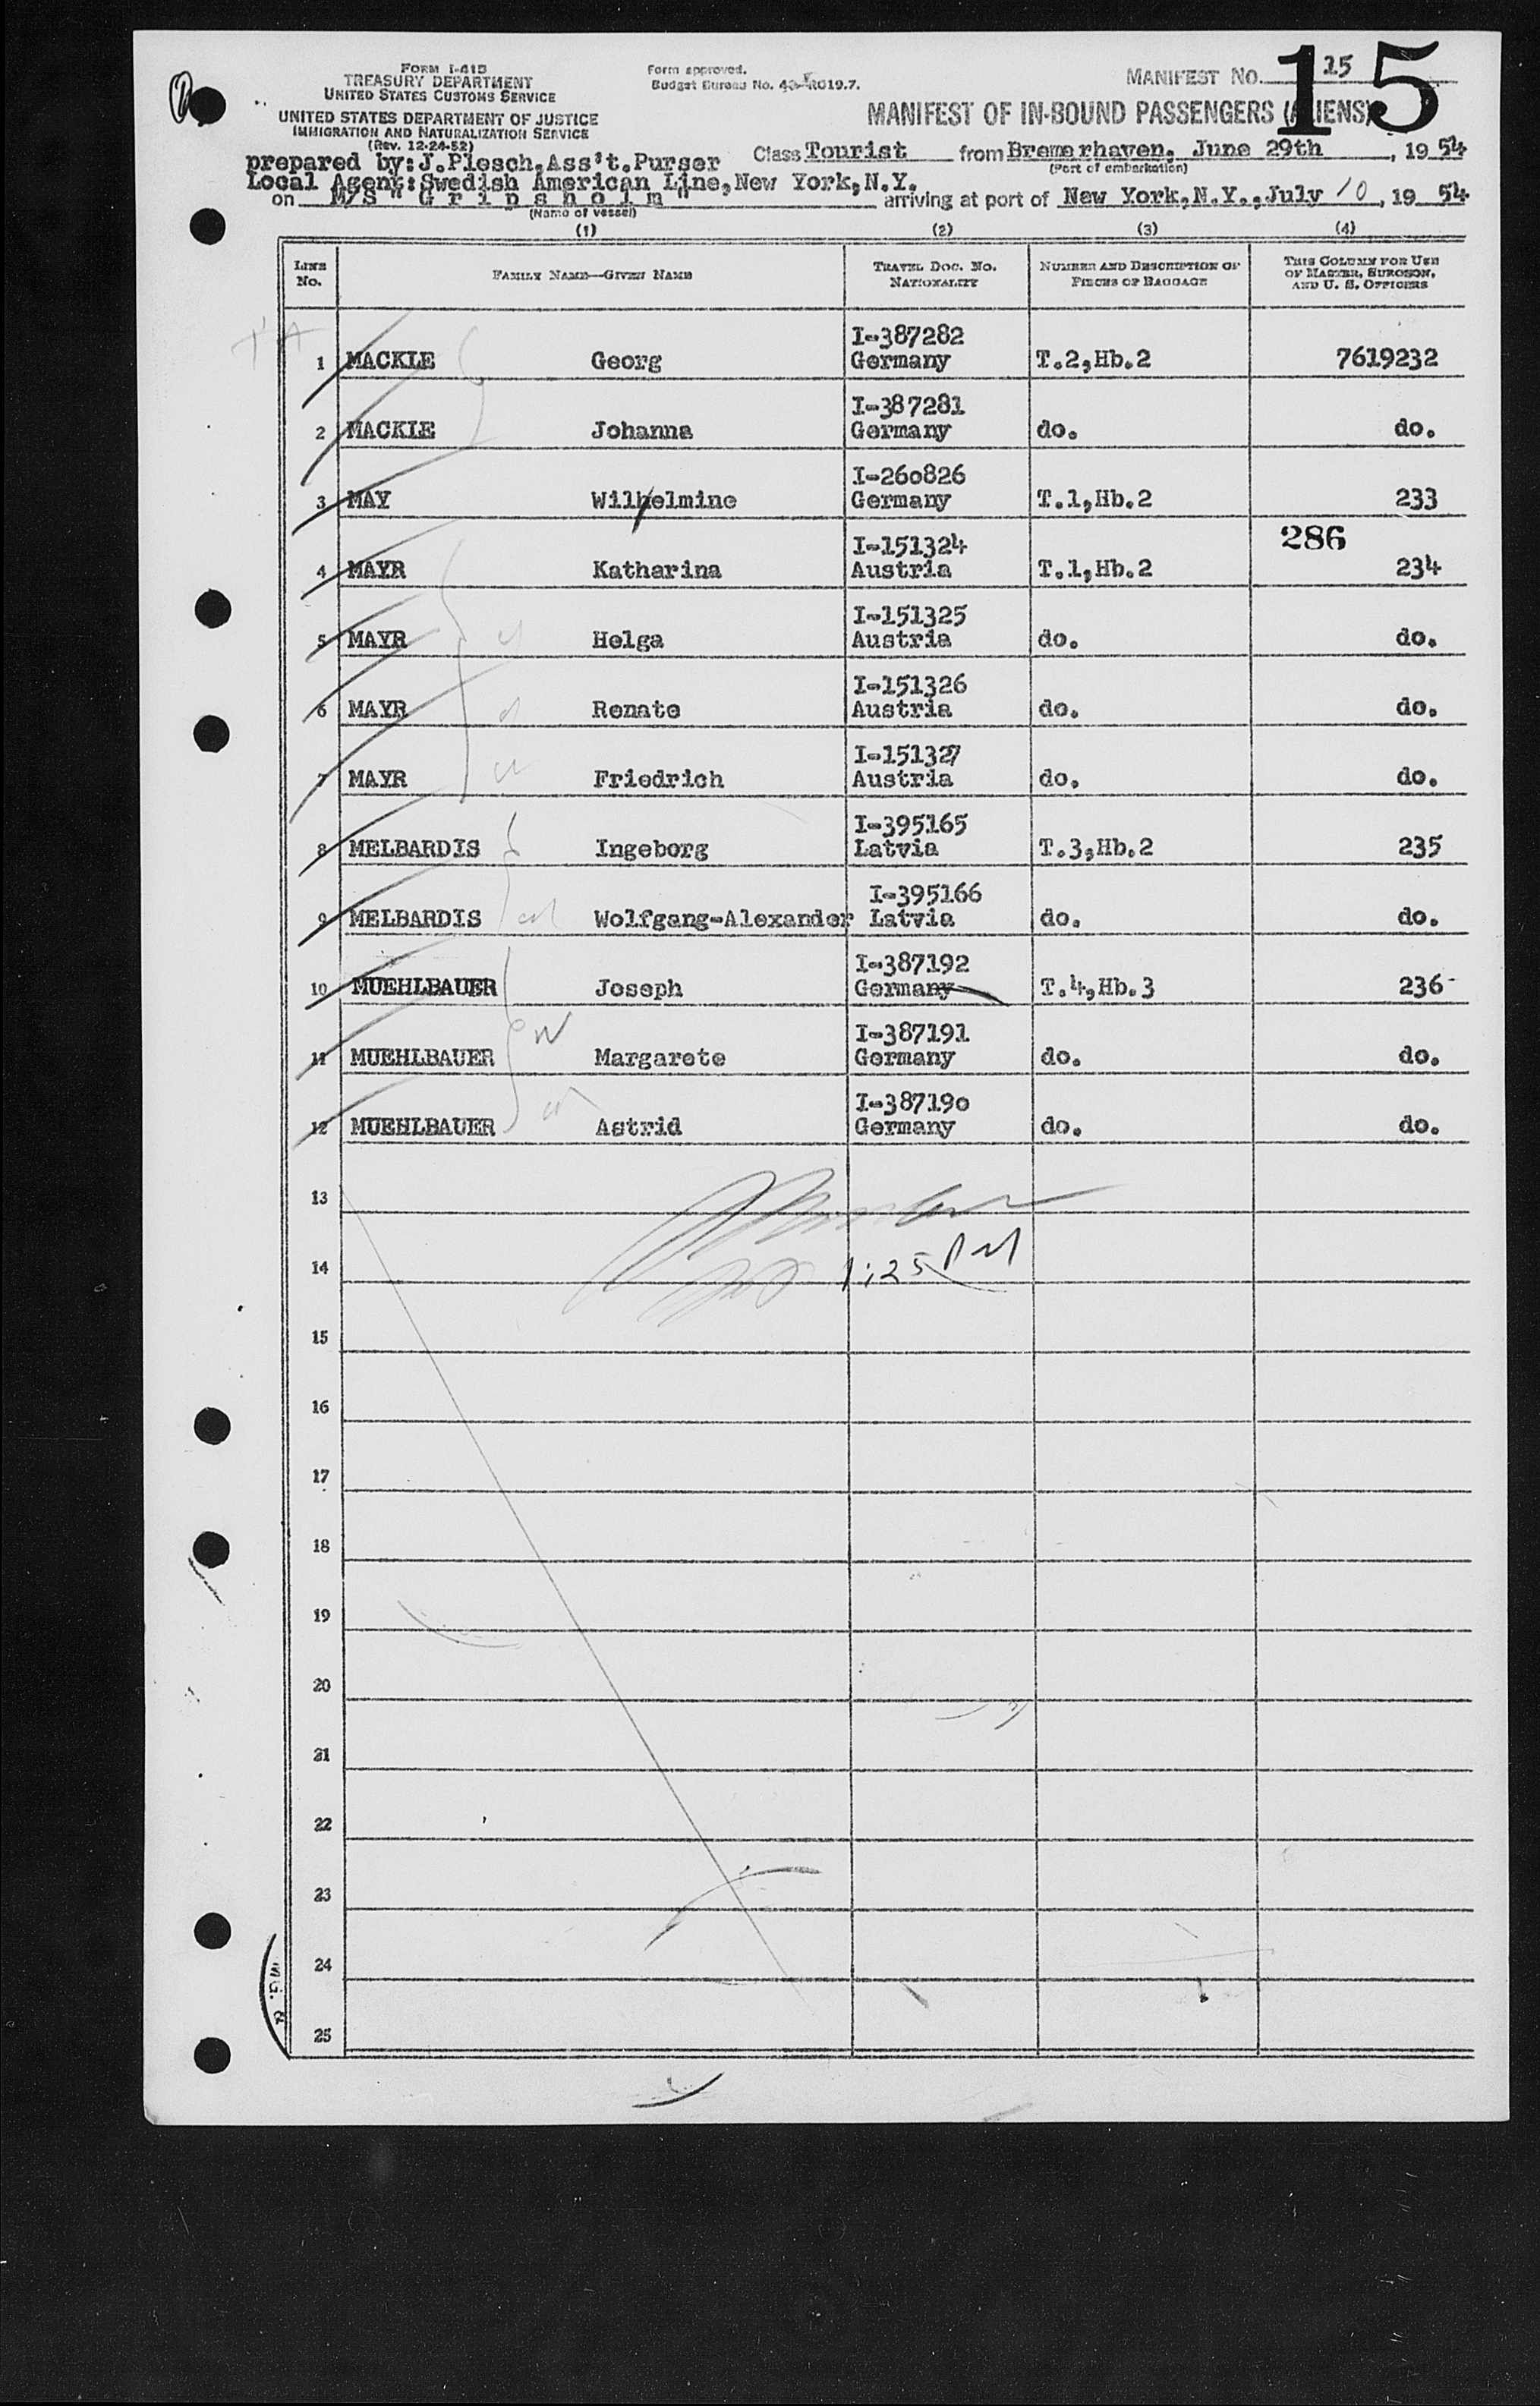 FORM I-415
TREASURY DEPARTMENT
UNITED STATES CUSTOMS SERVICE
UNITED STATES DEPARTMENT OF JUSTICE
IMMIGRATION AND NATURALIZATION SERVICE
(Rev. 12-24-52)
Form approved.
Budget Bureau No. 43-R019.7.
MANIFEST NO. 15
15
MANIFEST OF IN-BOUND PASSENGERS (ALIENS)
prepared by: J.Plesch.Ass't.Purser Class Tourist from Bremerhaven, June 29th, 19 54
(Port of embarkation)
Local Agent: Swedish American Line, New York, N.Y.
on M/S "Gripsholm" arriving at port of New York, N.Y., July 10, 19 54
(Name of vessel)
(1) (2) (3) (4)
LINE NO. FAMILY NAME—GIVEN NAME TRAVEL DOC. NO. NATIONALITY NUMBER AND DESCRIPTION OF PIECES OF BAGGAGE THIS COLUMN FOR USE OF MASTER, SURGEON, AND U. S. OFFICERS
I-387282
1 MACKLE Georg Germany T.2,Hb.2 7619232
I-387281
2 MACKLE Johanna Germany do. do.
I-260826
3 MAY Wilhelmine Germany T.1,Hb.2 233
I-151324 286
4 MAYR Katharina Austria T.1,Hb.2 234
I-151325
5 MAYR Helga Austria do. do.
I-151326
6 MAYR Renate Austria do. do.
I-151327
7 MAYR Friedrich Austria do. do.
I-395165
8 MELBARDIS Ingeborg Latvia T.3,Hb.2 235
I-395166
9 MELBARDIS Wolfgang-Alexander Latvia do. do.
I-387192
10 MUEHLBAUER Joseph Germany T.4,Hb.3 236
I-387191
11 MUEHLBAUER Margarete Germany do. do.
I-387190
12 MUEHLBAUER Astrid Germany do. do.
13
14 1:25 PM
15
16
17
18
19
20
21
22
23
24
25